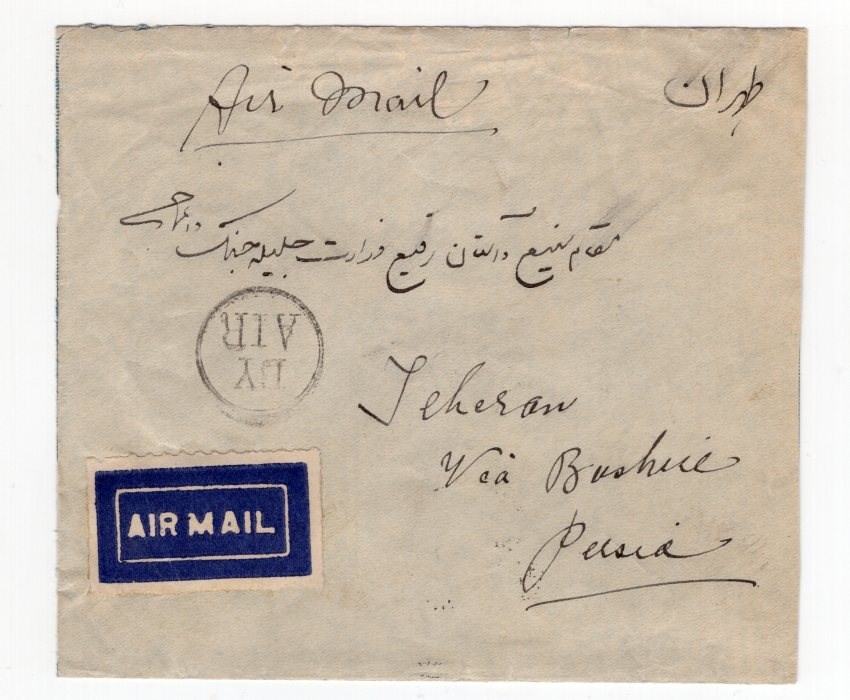 Air Mail
طهران
مقام منیع و آستان رفیع وزارت جلیله جنگ
BY
AIR
Teheran
Via Bushire
Persia
AIR MAIL